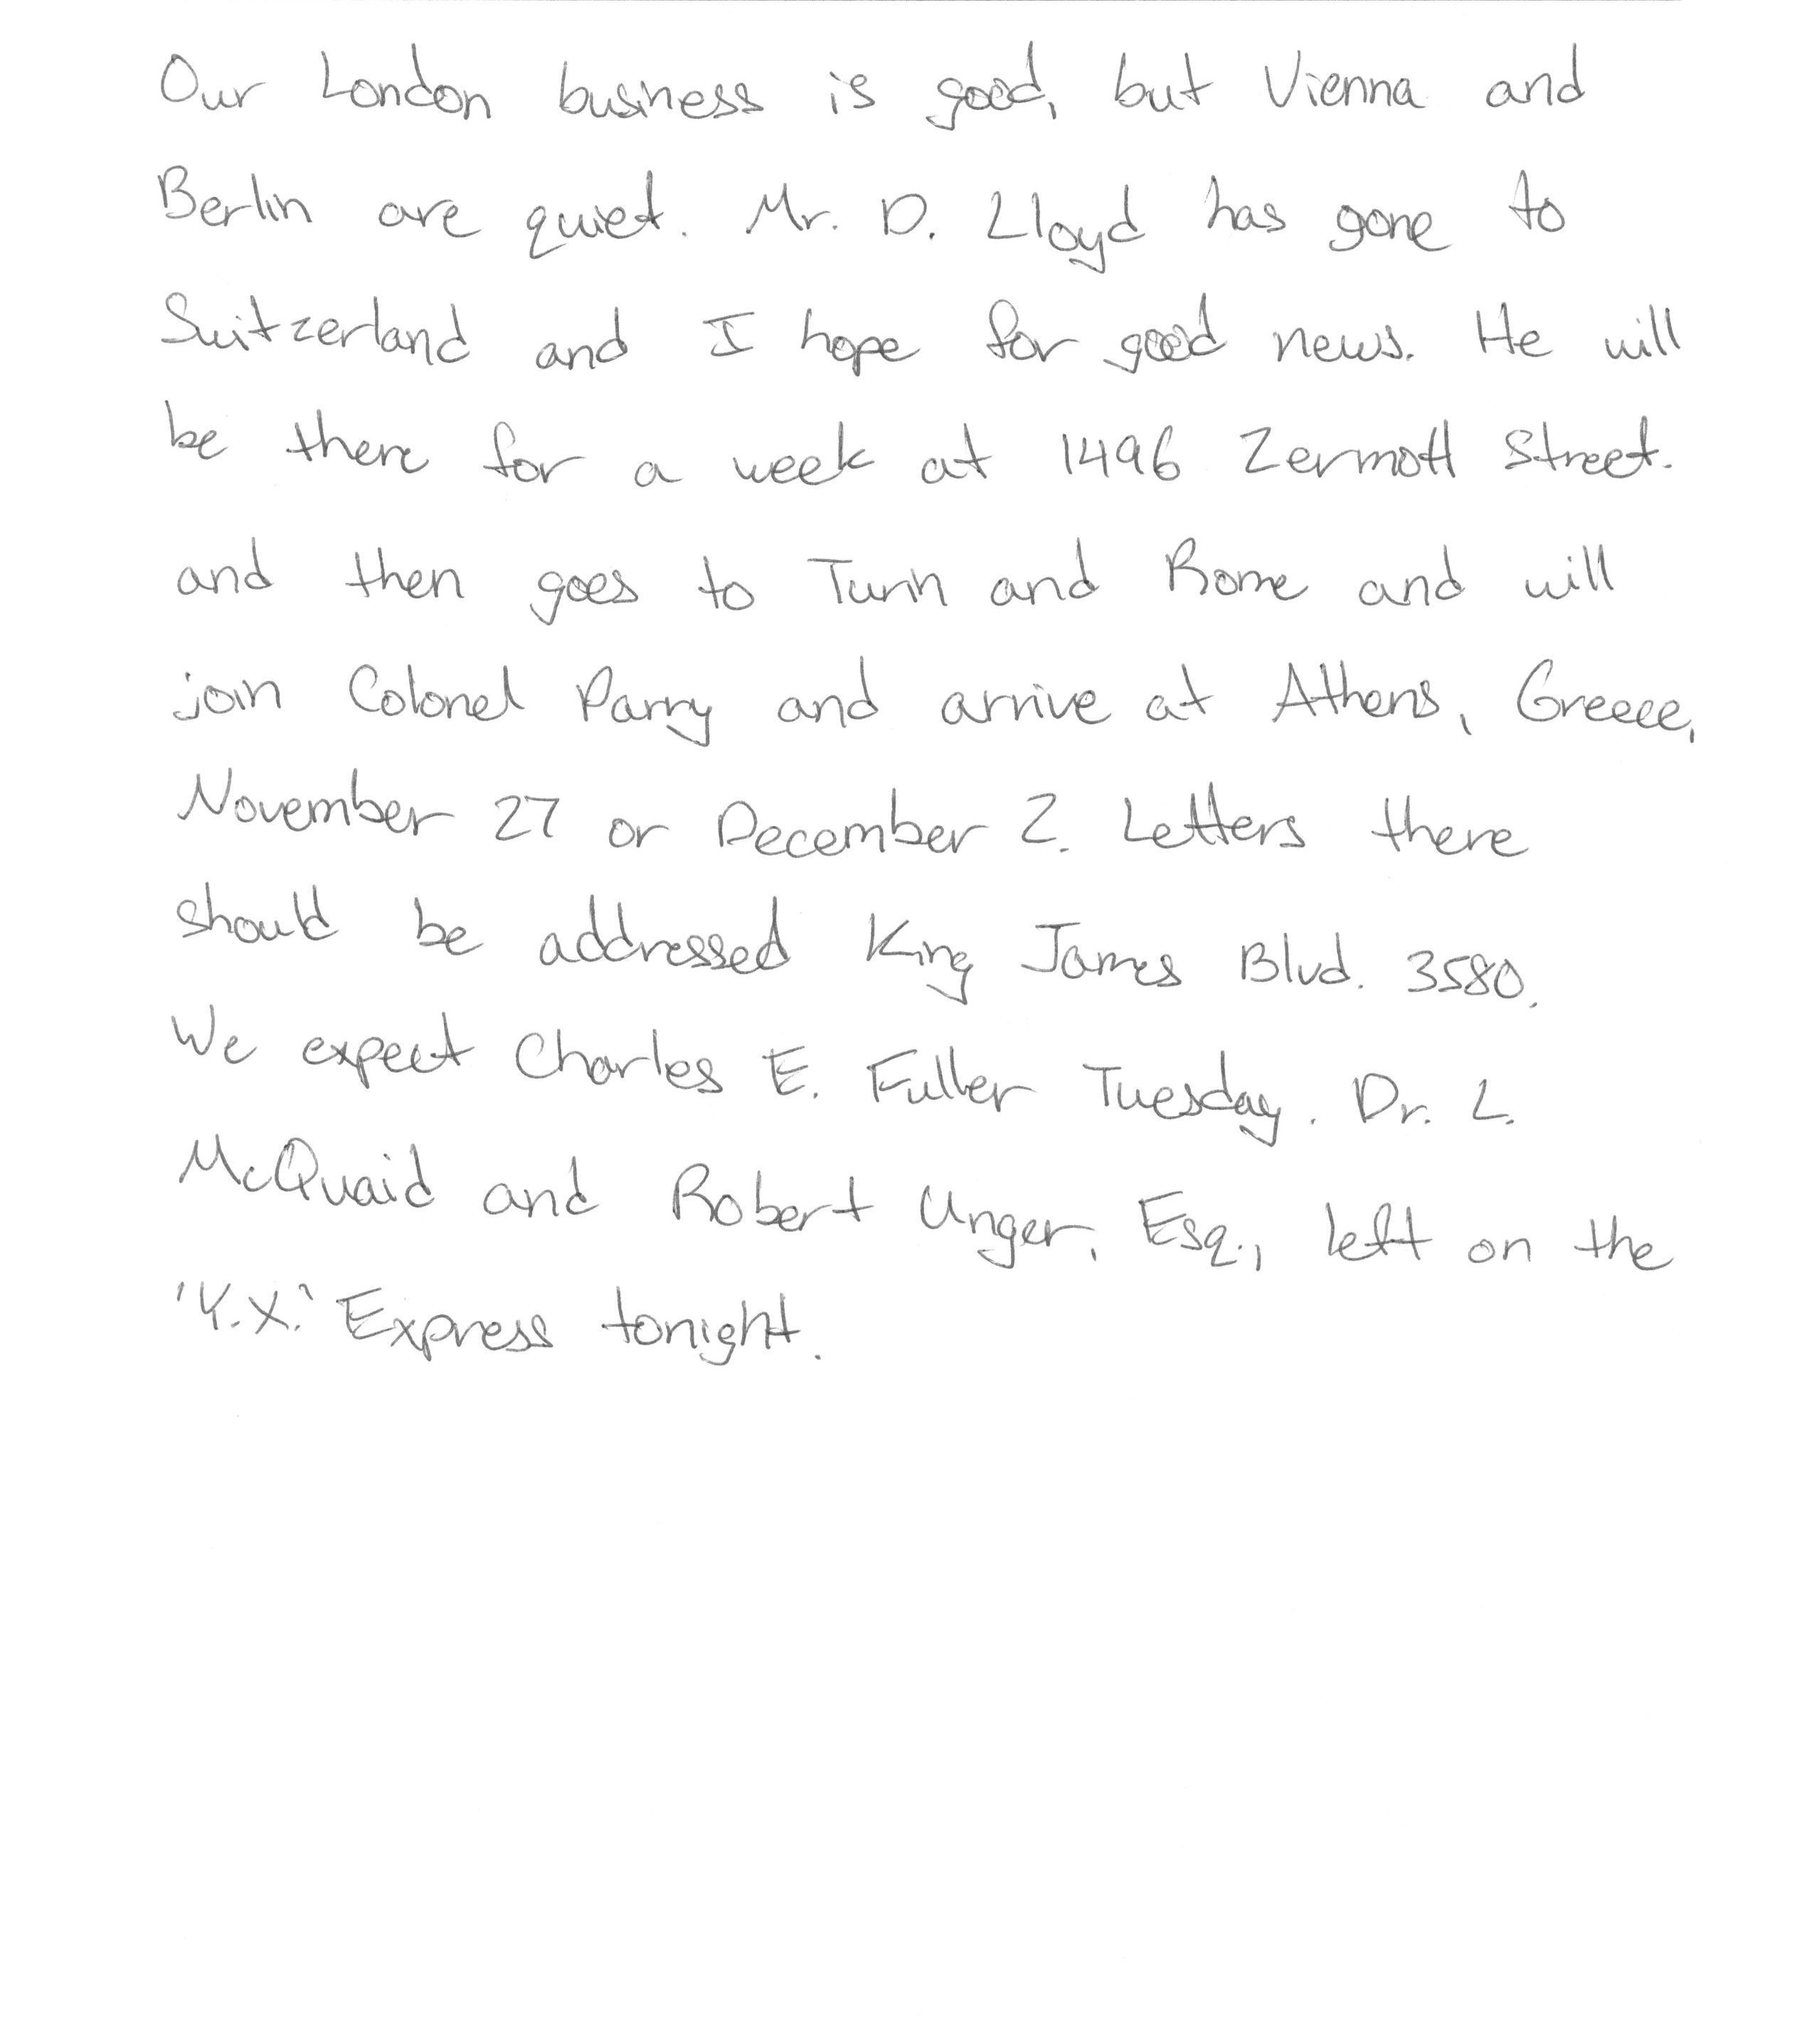 Our London business is good, but Vienna and
Berlin are quiet. Mr. D. Lloyd has gone to
Switzerland and I hope for good news. He will
be there for a week at 1496 Zermott Street.
and then goes to Turin and Rome and will
join Colonel Parry and arrive at Athens, Greece,
November 27 or December 2. Letters there
should be addressed King James Blvd. 3580.
We expect Charles E. Fuller Tuesday. Dr. L.
McQuaid and Robert Unger, Esq., left on the
'Y.X.' Express tonight.